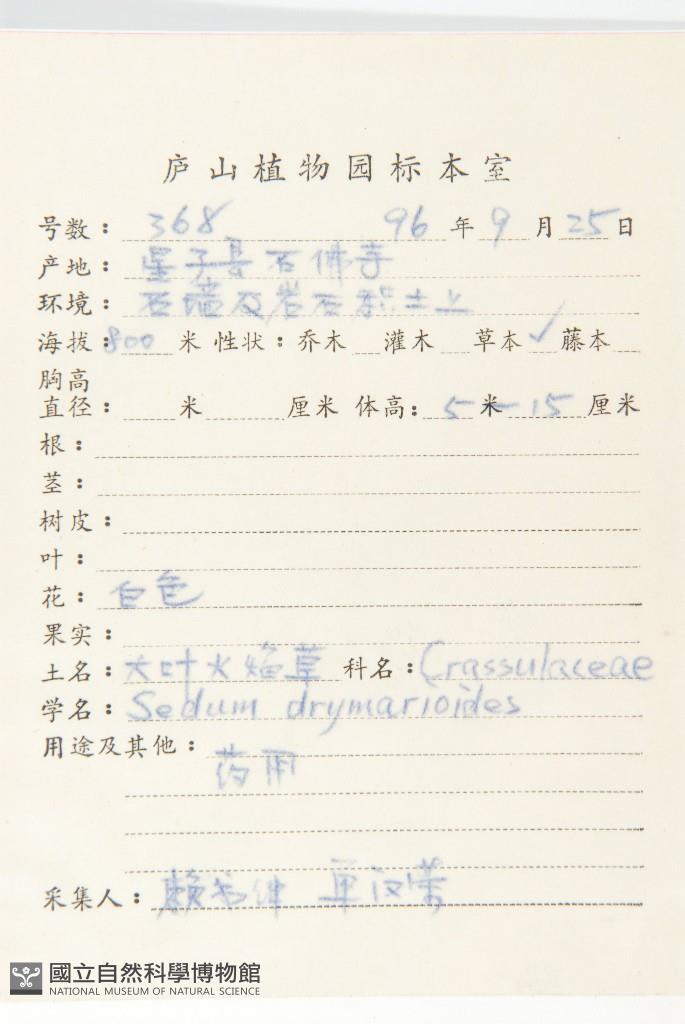 庐山植物园标本室
号数: 368 96年9月25日
产地: 星子县石佛寺
环境: 石墙及岩石积土上
海拔:800米 性状:乔木 灌木 草本✓ 藤本
胸高
直径: 米 厘米 体高: 5米—15厘米
根:
茎:
树皮:
叶:
花: 白色
果实:
土名:大叶火焰草 科名:Crassulaceae
学名:Sedum drymarioides
用途及其他:
药用
采集人: 赖书绅 单汉荣
國立自然科學博物館
NATIONAL MUSEUM OF NATURAL SCIENCE